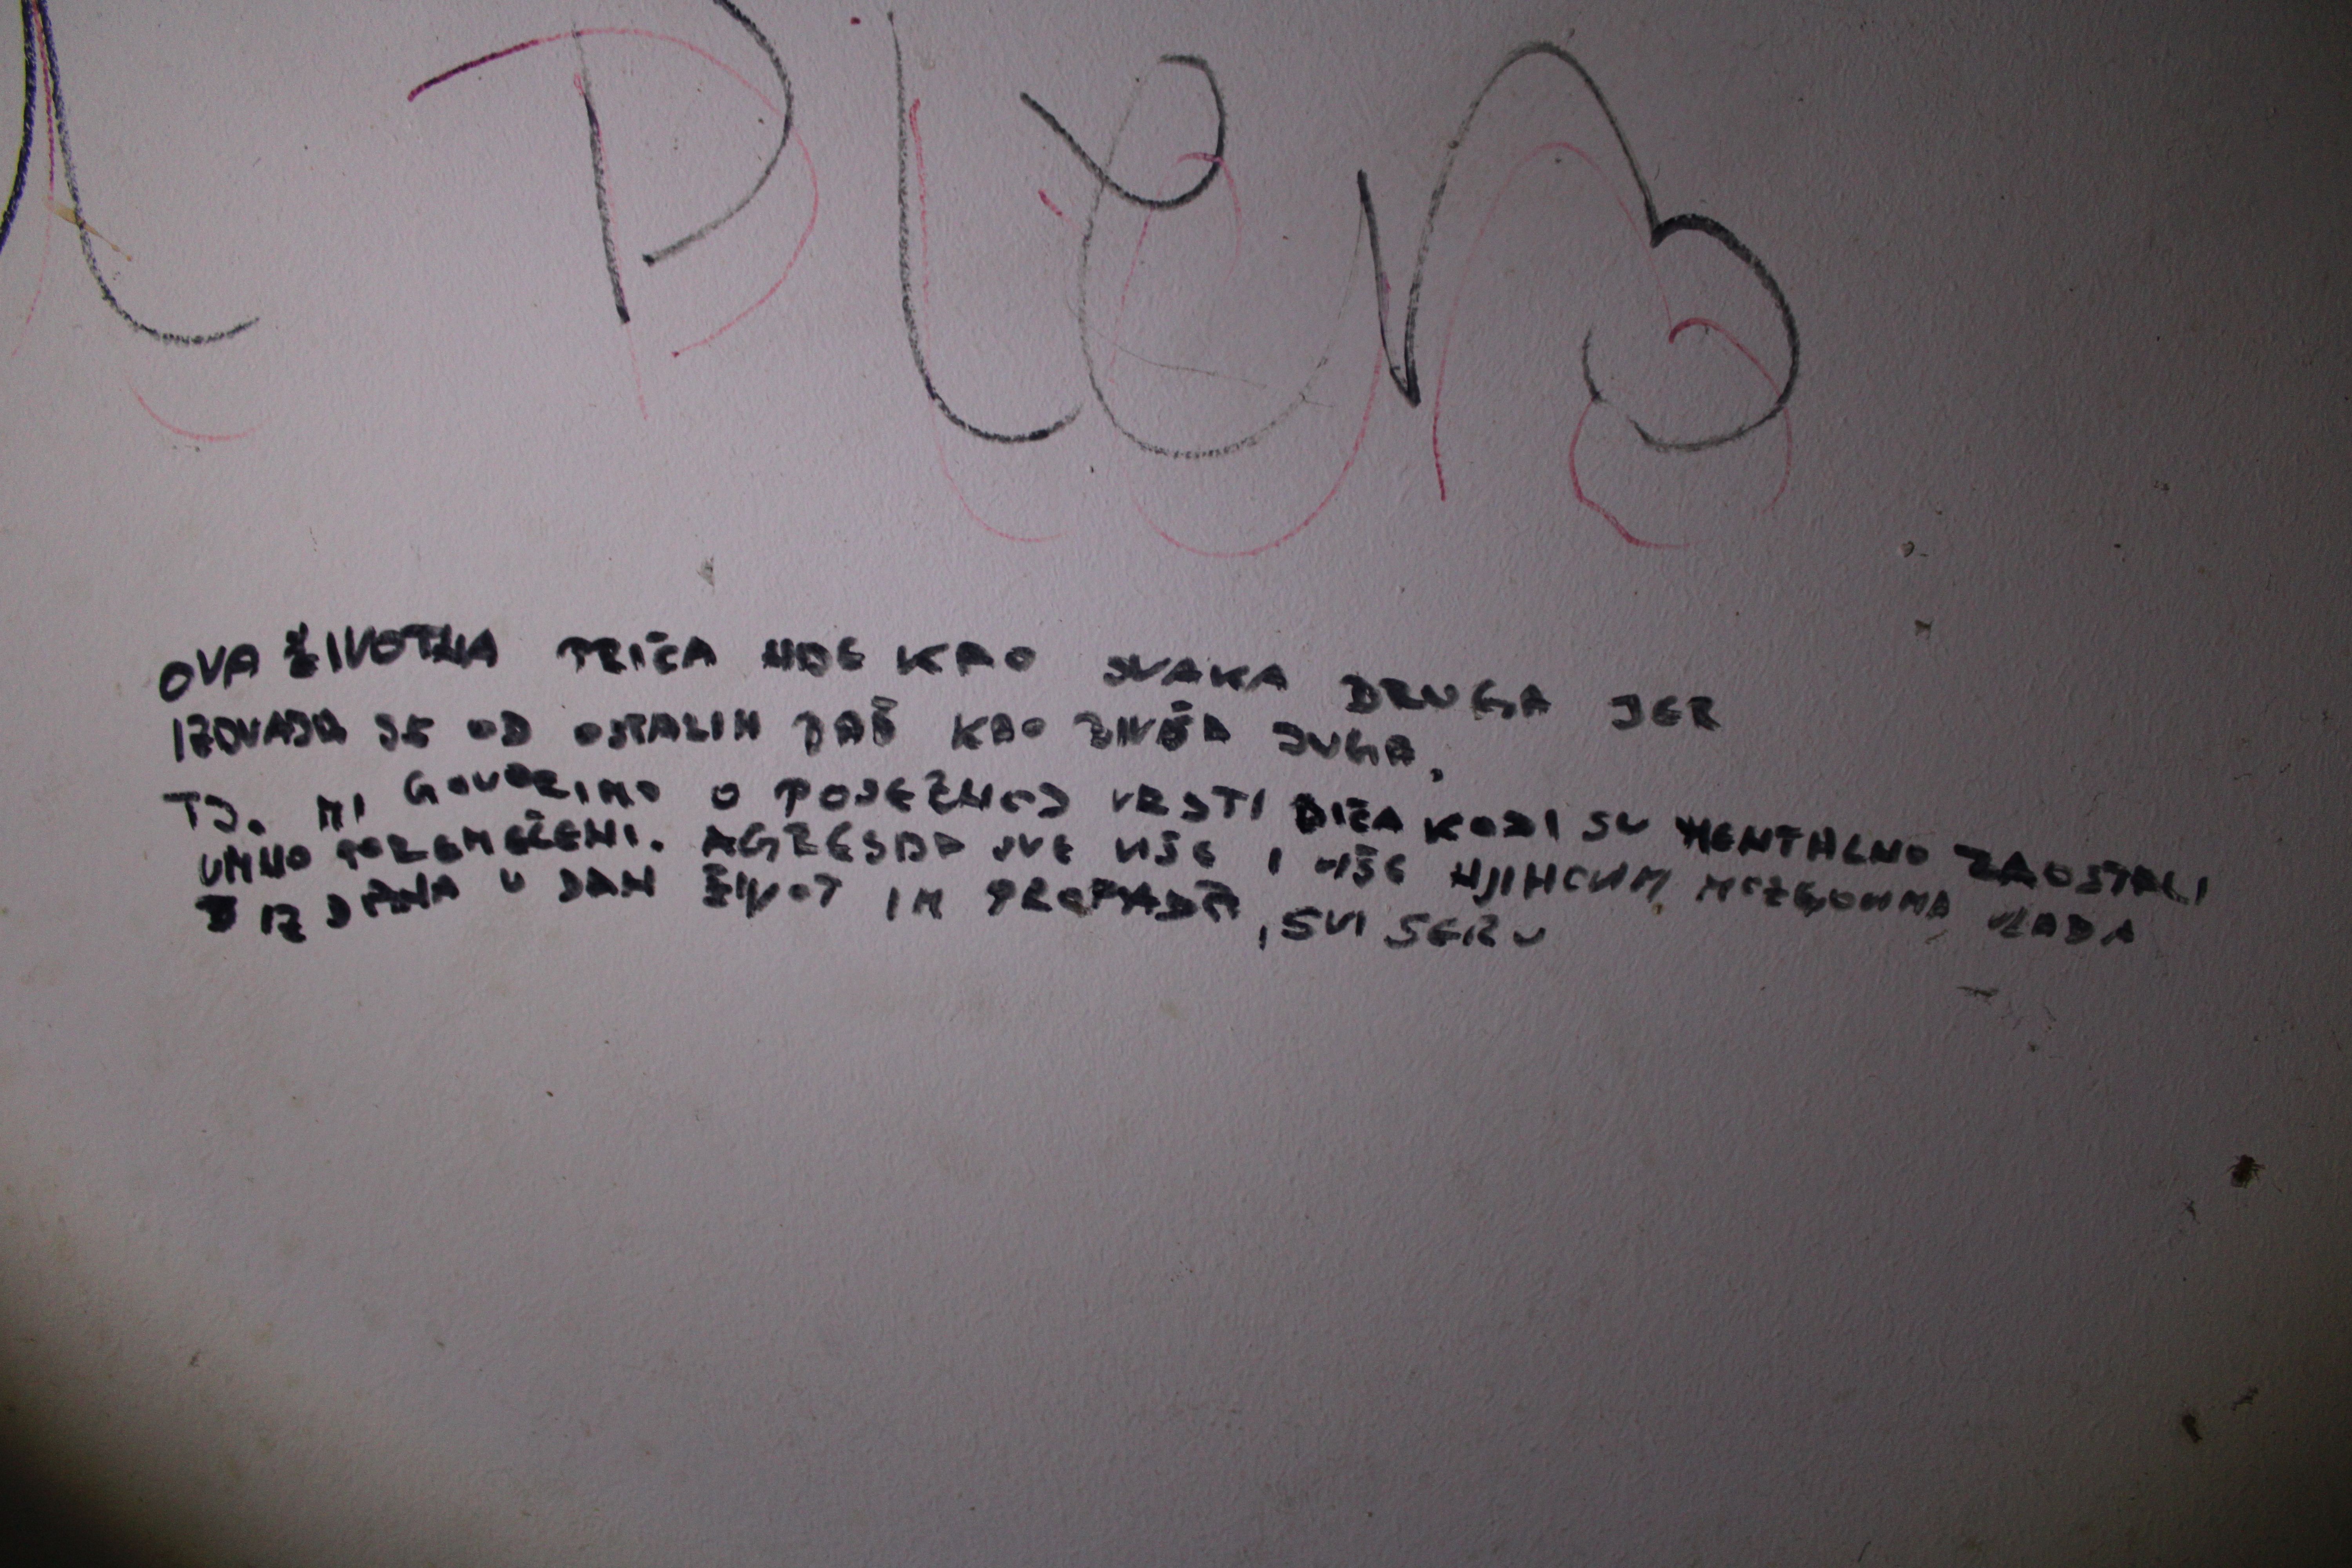 Plens
OVA ŽIVOTNA PRIČA NIJE KAO SVAKA DRUGA JER
IZDVAJA SE OD OSTALIH BAŠ KAO JUGA.
TJ. MI GOVORIMO O POSEBNOJ VRSTI DIČA KOJI SU MENTALNO ZAOSTALI
UMNO POREMEČENI. AGRESIJA SVE VIŠE I VIŠE NJIHOVIM MOZGOVIMA VLADA
IZ DANA U DAN ŽIVOT IM PROPADA, SVI SERU